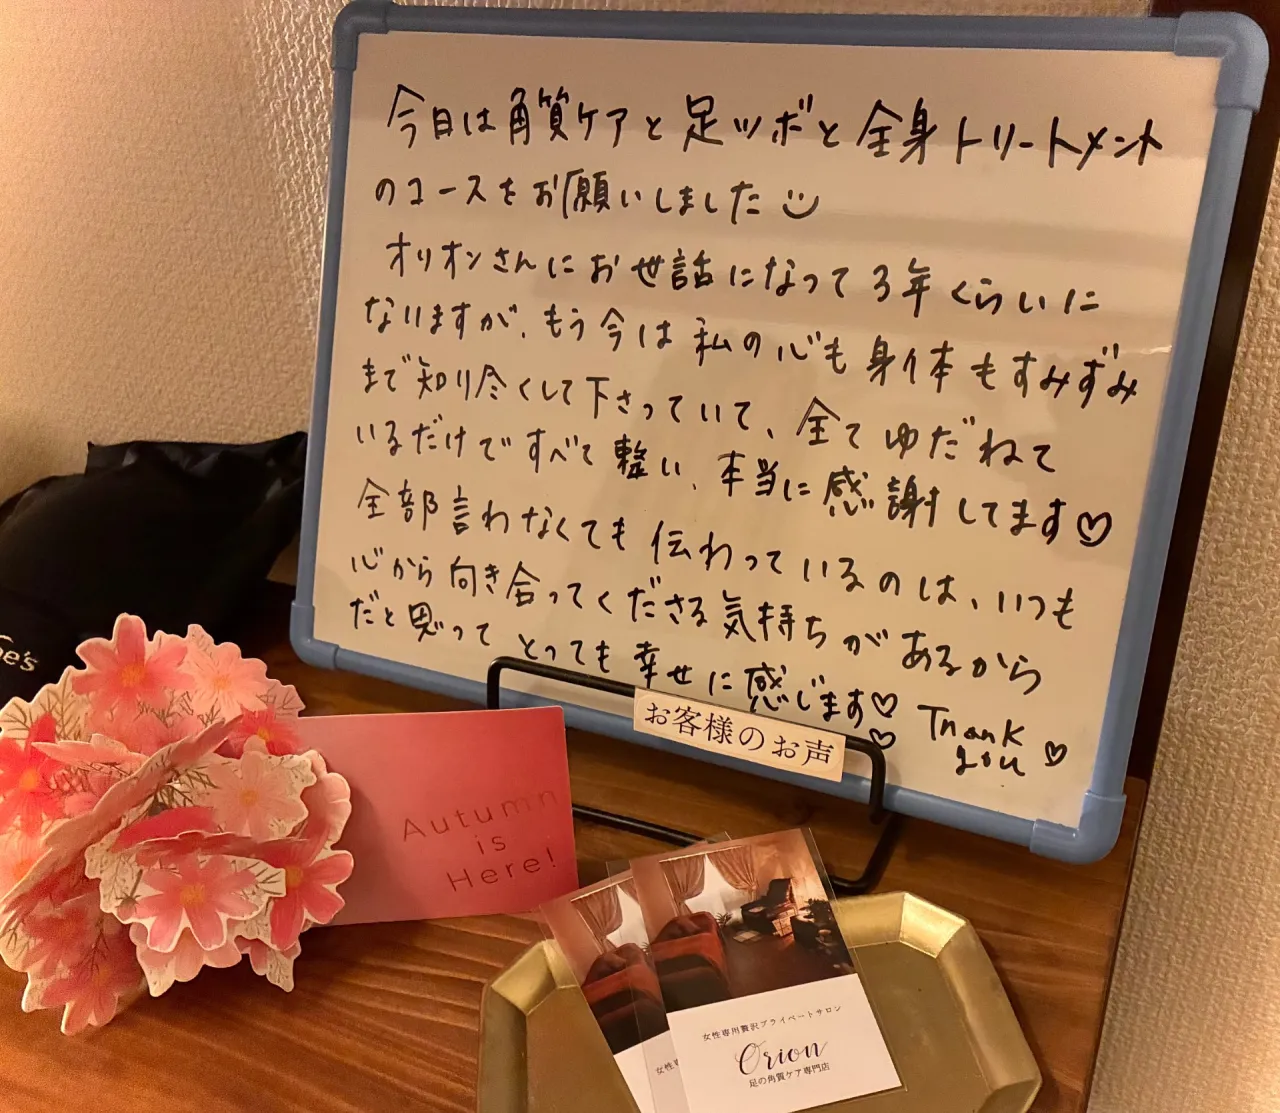 今日は角質ケアと足ツボと全身トリートメント
のコースをお願いしました
オリオンさんにお世話になって3年くらいに
なりますが、もう今は私の心も身体もすみずみ
まで知り尽くして下さっていて、全てゆだねて
いるだけですべて整い、本当に感謝してます♡
全部言わなくても伝わっているのは、いつも
心から向き合ってくださる気持ちがあるから
だと思ってとっても幸せに感じます♡♡ Thank
you♡
お客様のお声
Autumn
is
Here!
女性専用贅沢プライベートサロン
Orion
足の角質ケア専門店